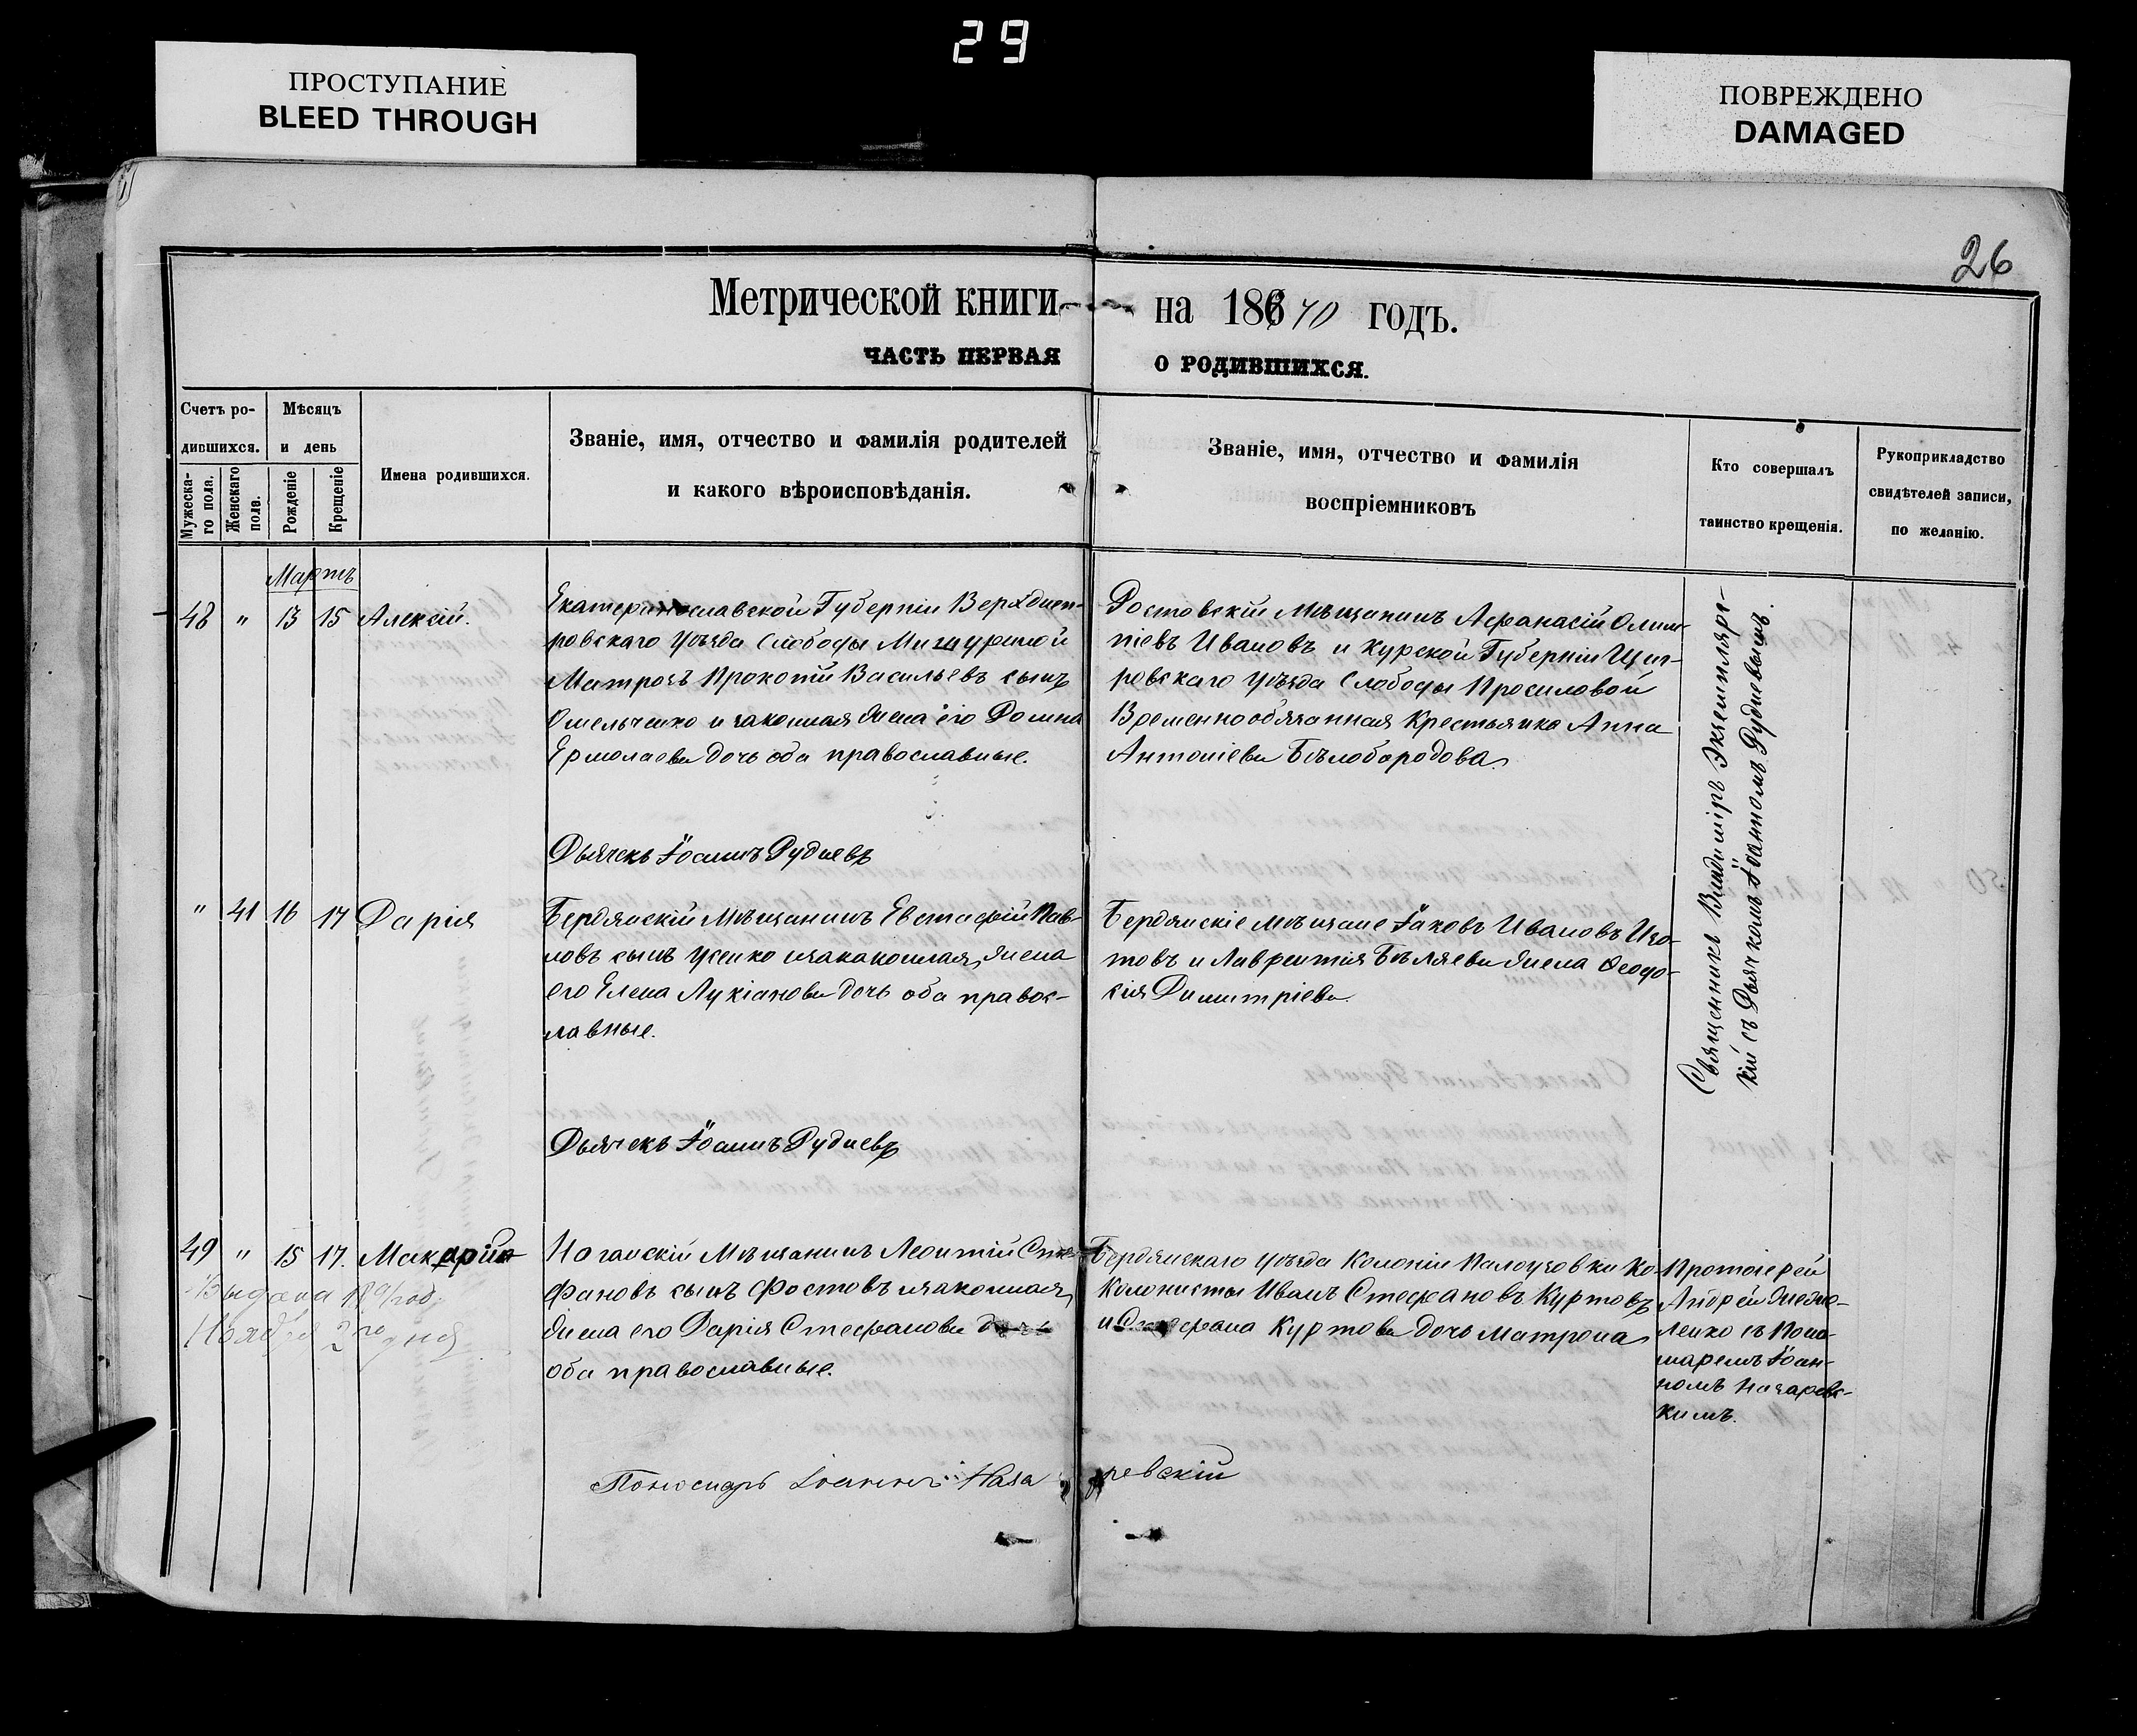 29
ПРОСТУПАНИЕ
BLEED THROUGH
ПОВРЕЖДЕНО
DAMAGED
26
Метрической книги на 1870 годъ.
ЧАСТЬ ПЕРВАЯ О РОДИВШИХСЯ.
Счетъ ро-
дившихся.
Мужеска-
го пола.
Женскаго
пола.
Мѣсяцъ
и день
Рожденіе
Крещеніе
Имена родившихся.
Званіе, имя, отчество и фамилія родителей
и какого вѣроисповѣданія.
Званіе, имя, отчество и фамилія
воспріемниковъ
Кто совершалъ
таинство крещенія.
Рукоприкладство
свидѣтелей записи,
по желанію.
Мартъ
48 " 13 15 Алексій.
Екатеринославской Губерніи Верхднеп-
ровскаго Уѣзда Слободы Мишуриной
Матрозъ Прокопій Васильевъ сынъ
Омельченко и законная жена его Домна
Ермолаева дочь оба православные.
Ростовскій Мѣщанинъ Афанасій Олим-
піевъ Ивановъ и Курской Губерніи Щиг-
ровскаго уѣзда Слободы
Временнообязанная Крестьянка Анна
Антоніева Бѣлобородова
Священникъ Владиміръ Экземпляр-
скій съ Дьячкомъ Іоанномъ Рудневымъ.
Дьячекъ Іоаннъ Рудневъ
" 41 16 17 Дарія
Бердянскій Мѣщанинъ Евстафій Пав-
ловъ сынъ Усенко и законная жена
его Елена Лукіанова дочь оба правос-
лавные.
Бердянскіе мѣщане Іаковъ Ивановъ Изо-
товъ и Лаврентія Бѣляева жена Ѳеодо-
сія Димитріева
Дьячекъ Іоаннъ Рудневъ
49 " 15 17. Макарій
Выдана год.
Ноября 2го дня
Ногайскій Мѣщанинъ Леонтій Сте-
фановъ сынъ Фостовъ и законная
жена его Дарія Стефанова дочь
оба православные.
Бердянскаго уѣзда Колоніи Палоузовки Ко-
Колонисты Иванъ Стефановъ Куртовъ
и Стефана Куртова дочь Матрона
Протоіерей
Андрей
съ Поно-
маремъ Іоан-
номъ Назаревс-
кимъ.
Пономарь Іоаннъ Назаревскій